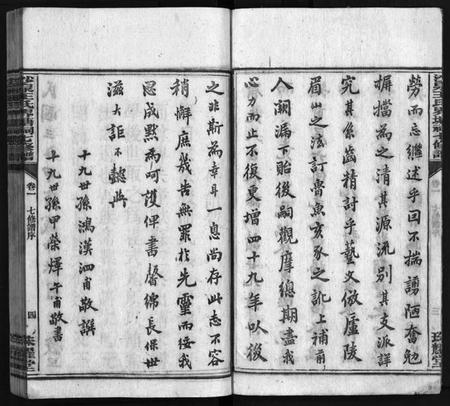 勞而忘繼述乎囙不揣譾陋奮勉
摒擋為之清其源流別其支派詳
究其年齒精討乎藝文倣廬陵
眉山之法訂魯魚亥豕之訛上補前
人闕漏下貽後嗣觀摩總期盡我
心力而止不復更增四十九年以後
之非斯為幸耳一息尚存此志不容
稍懈庶幾告無罪於先靈而綏我
思成默為呵護俾書馨佛長保世
滋大詎不懿與
十九世孫鴻漢泗甫敬譔
廾九世孫甲榮煇午甫敬書
卷一
七修譜序
四